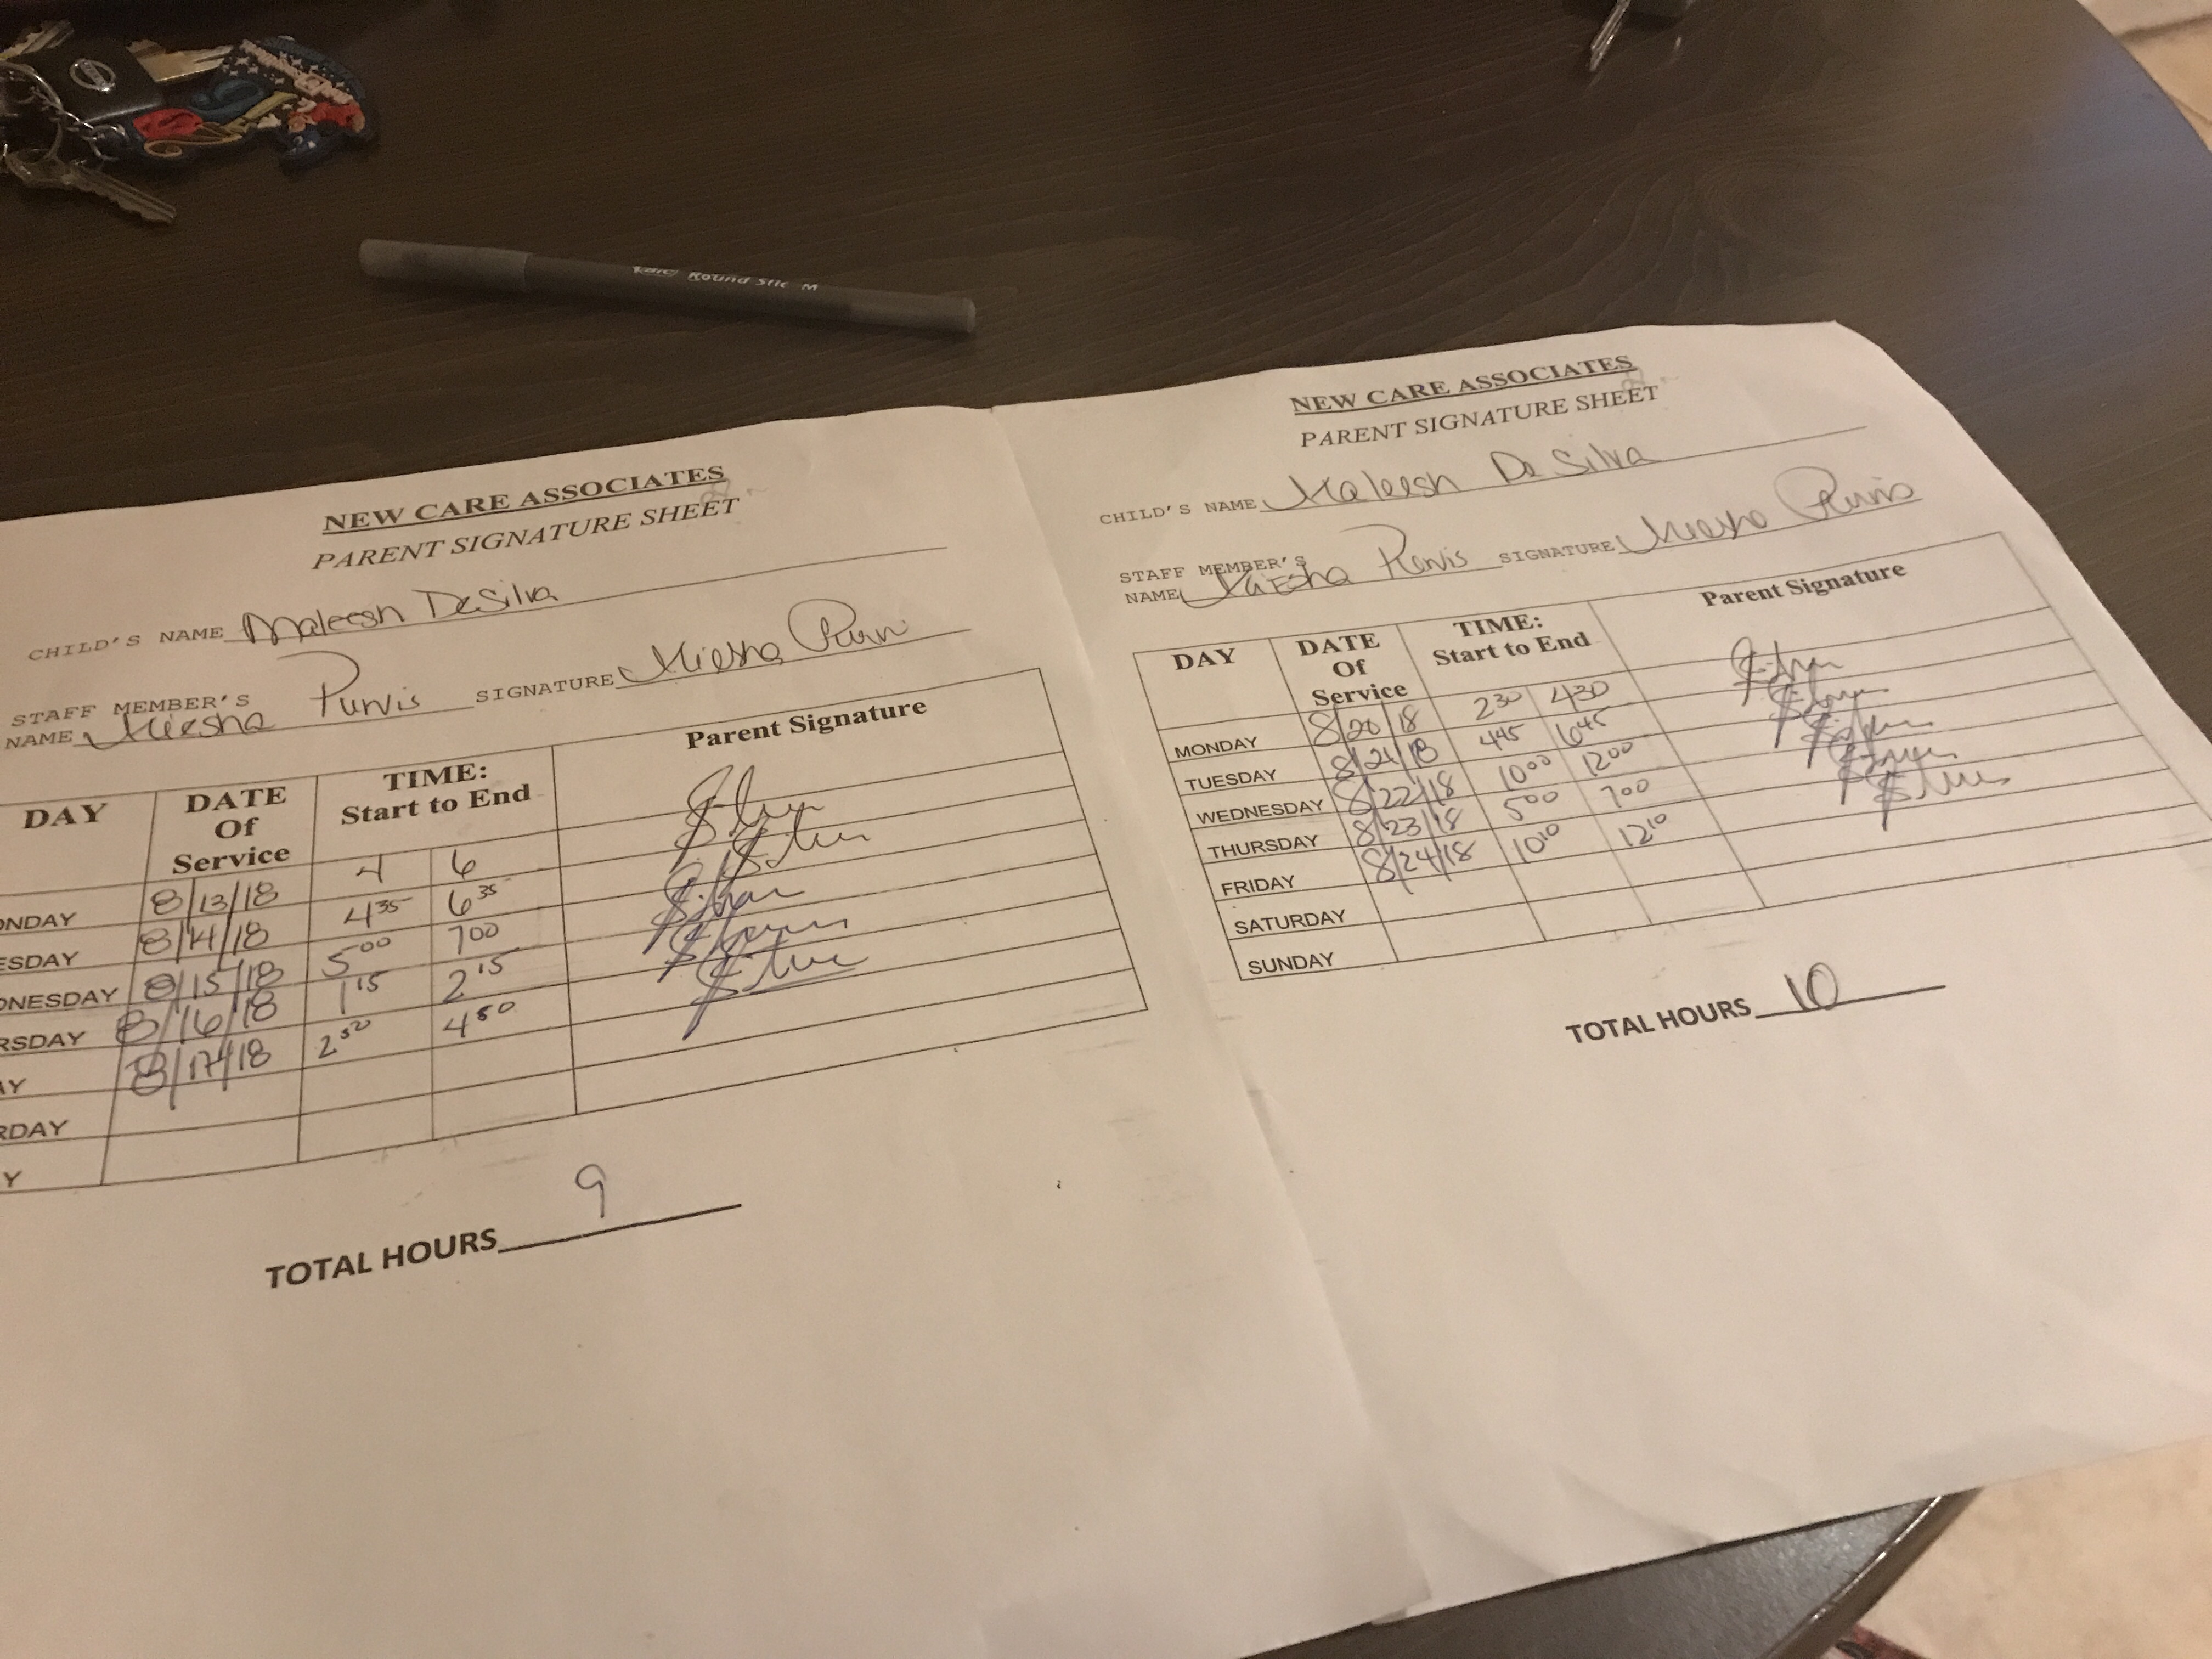 BIC Round Stic M
NEW CARE ASSOCIATES
PARENT SIGNATURE SHEET
CHILD'S NAME Maleesh DeSilva
STAFF MEMBER'S
NAME Miesha Purvis SIGNATURE Miesha Purvis
DAY DATE Of Service TIME: Start to End Parent Signature
ONDAY 8/13/18 4 6
ESDAY 8/14/18 4 35 6 35
DNESDAY 8/15/18 5 00 7 00
RSDAY 8/16/18 1 15 2 15
AY 8/17/18 2 50 4 50
RDAY
Y
TOTAL HOURS 9
NEW CARE ASSOCIATES
PARENT SIGNATURE SHEET
CHILD'S NAME Maleesh DeSilva
STAFF MEMBER'S
NAME Miesha Purvis SIGNATURE Miesha Purvis
DAY DATE Of Service TIME: Start to End Parent Signature
MONDAY 8/20/18 2 30 4 30
TUESDAY 8/21/18 4 45 6 45
WEDNESDAY 8/22/18 10 00 12 00
THURSDAY 8/23/18 5 00 7 00
FRIDAY 8/24/18 10 10 12 10
SATURDAY
SUNDAY
TOTAL HOURS 10